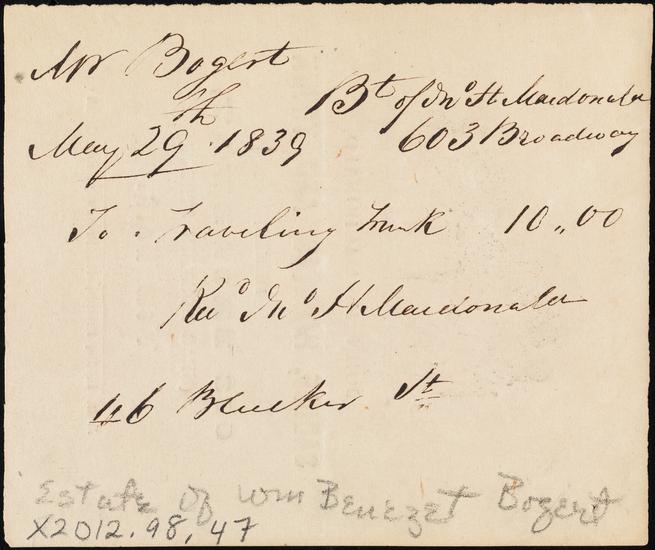 Mr Bogert
Bt of Jno H Macdonald
May 29th 1839 603 Broadway
To Traveling Trunk 10,,00
Recd Jno H Macdonald
46 Bleecker St
Estate of Wm Benezet Bogert
X2012.98.47